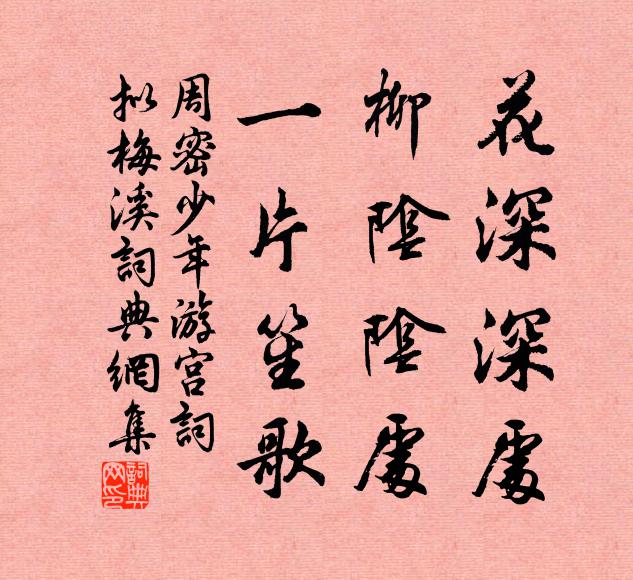 花深深處
柳陰陰處
一片笙歌
周密少年游宮詞
拟梅溪詞典網集
詞典网印